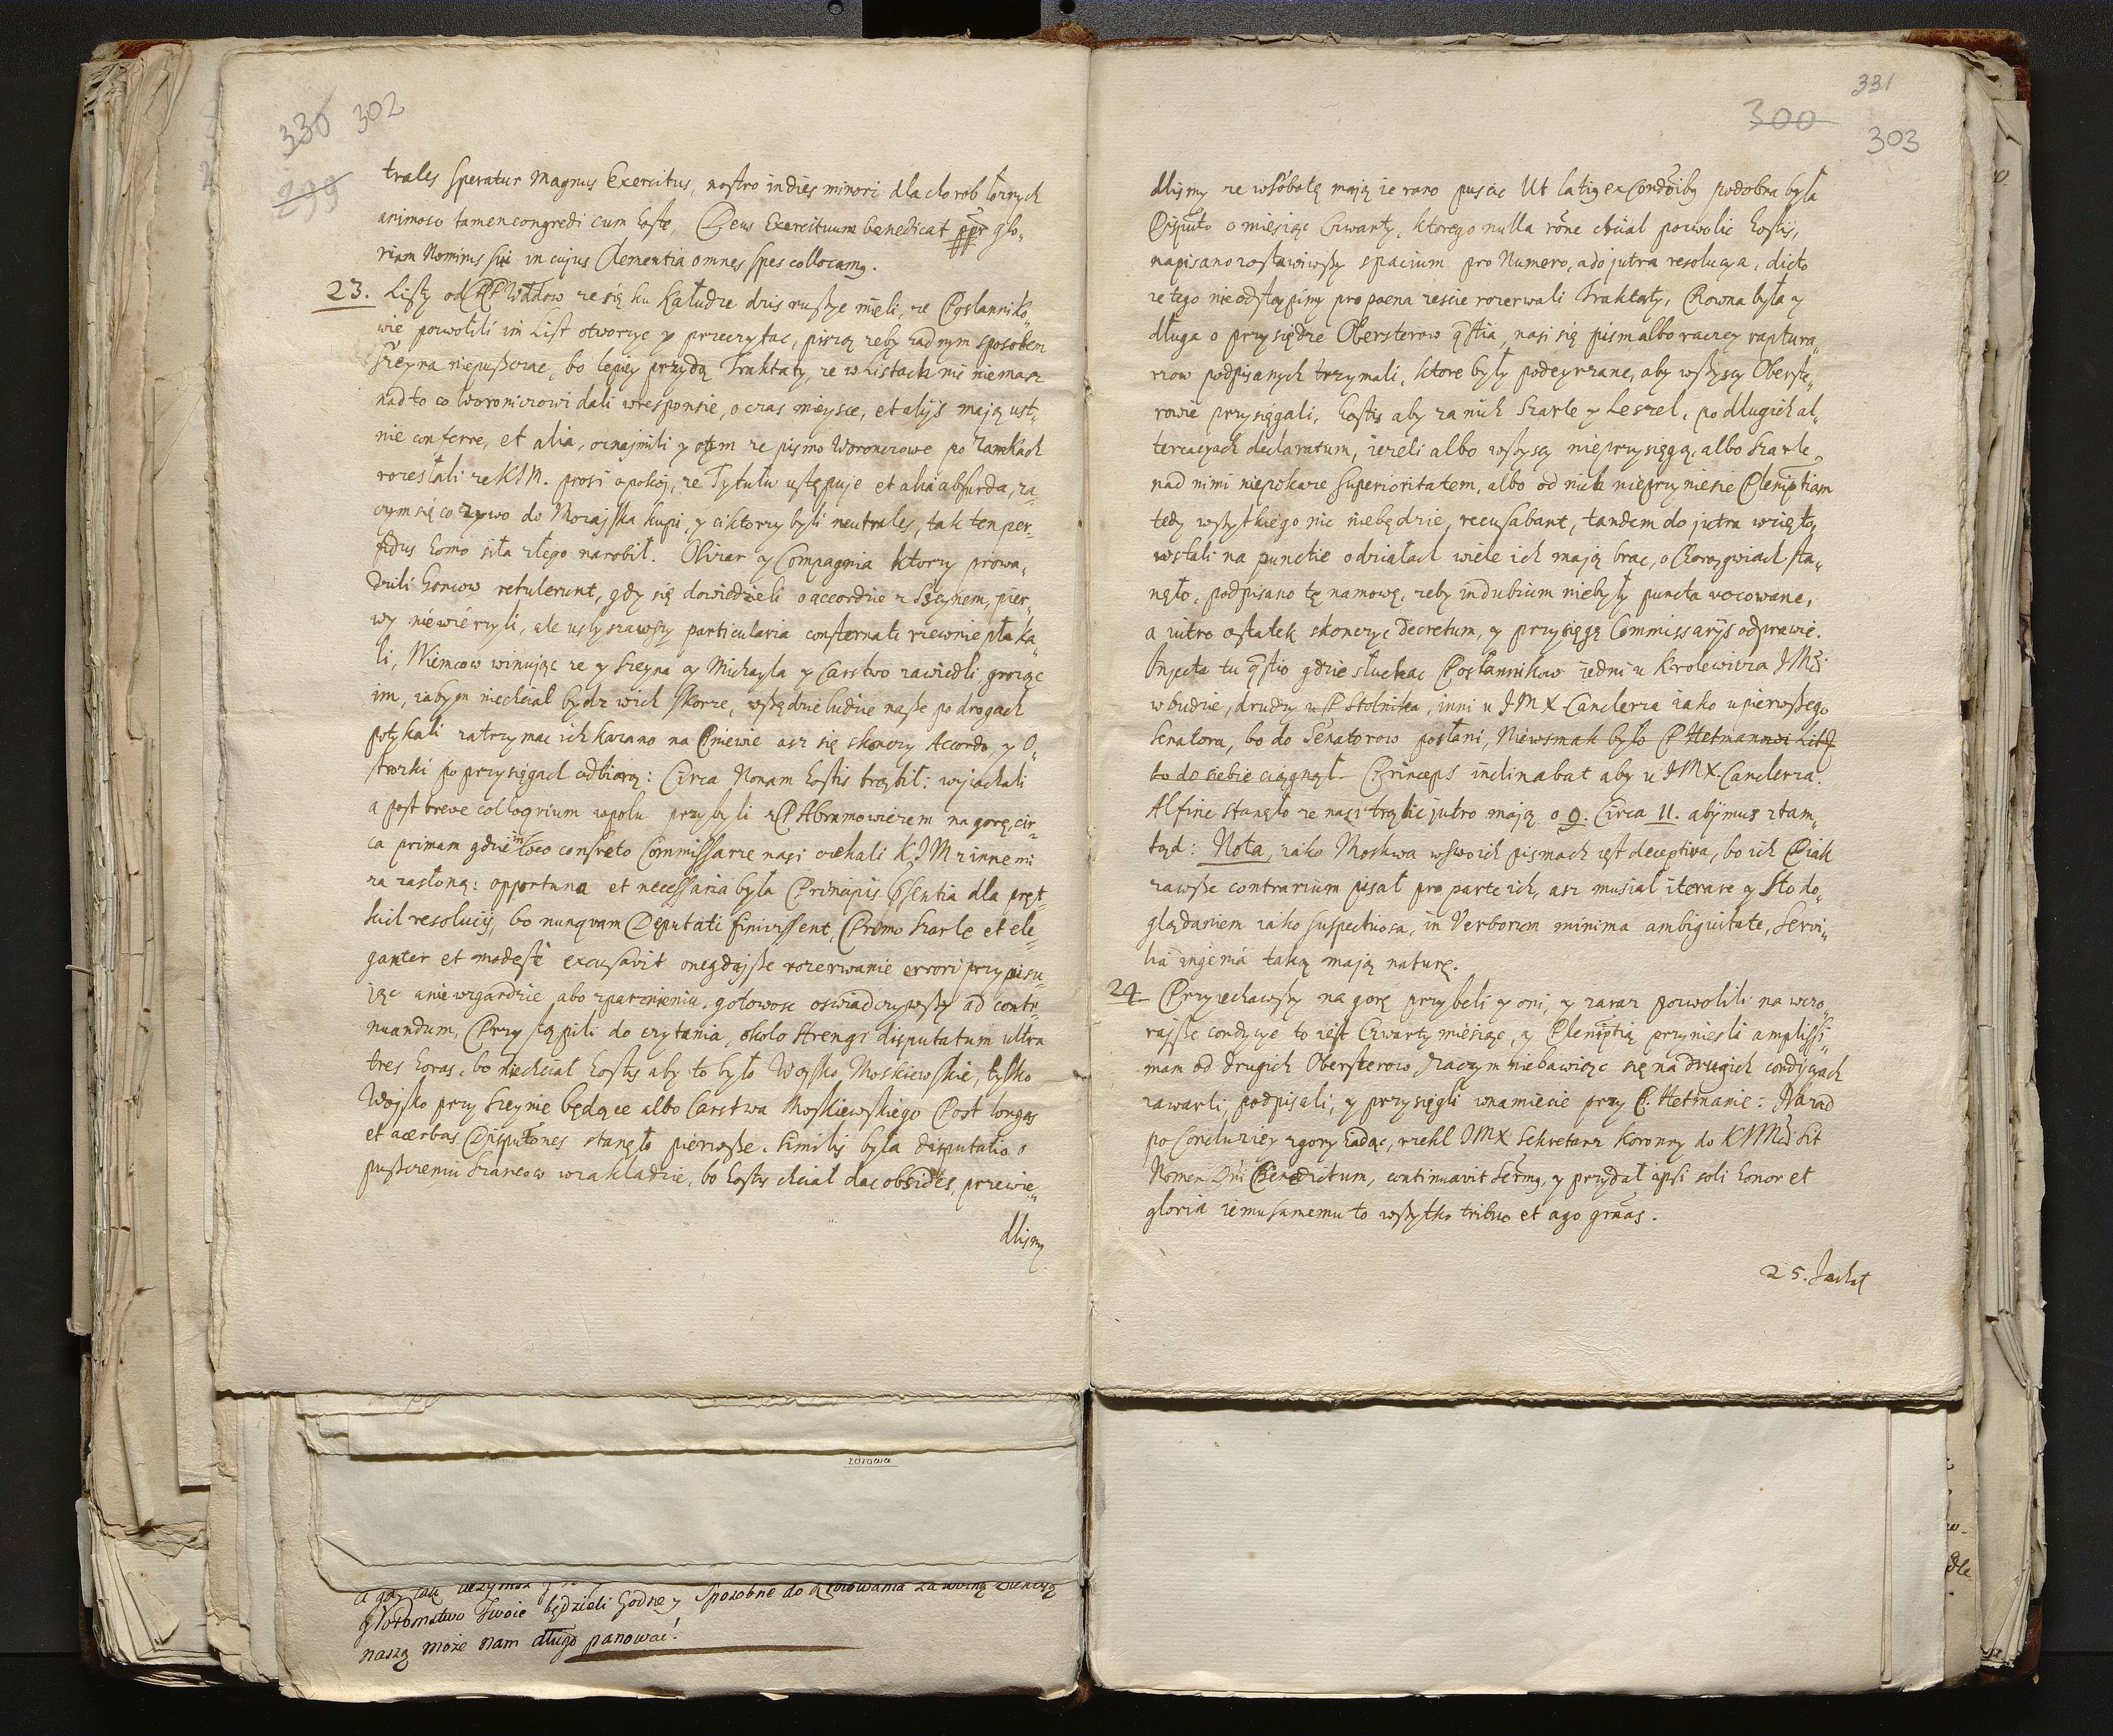 330 302
299
trales speratur Magnus Exercitus, nostro indies minori dla chorob
animoso tamen congredi cum hoste, Deus Exercituum benedicat ppr glo„
riam Nominis sui in cujus Clementia omnes spes collocamq.
23. Listy od PP Wddow ze się ku Kałudze dzis ruszyc mieli, ze Posłanniko„
wie pozwolili im List otworzyc y przeczytac, piszą zeby zadnym sposobem
Szeyna niepuszczac, bo lepiey przydą Traktaty, ze w Listach nic niemasz
nad to co Woroniczowi dali w responsie, o czas mieysce, et alijs mają ust„
nie conferre, et alia, oznajmili y otym ze pismo Woronczowe po Zamkach
rozesłali ze KJM. prosi o pokoj, ze Tytułu ustępuje et alia absurda, za„
czym się co zywo do Mozajska kupi, y ci ktorzy byli neutrales, tak ten per„
fidus homo siła złego narobił. Olizar y Compagnia ktory prowa„
dzili honcow retulerunt, gdy się dowiedzieli o accordzie z Szeynem, pier„
wy niewierzyli, ale usłyszawszy particularia consternati rzewnie płaka„
li, Niemcow winując ze y Szeyna y Michayła y Carstwo zawiedli, grożąc
im, zabym niechciał bydz w ich skorze, wszędzie ludzie nasze po drogach
potykali zatrzymac ich kazano na Pniewie asz się skonczy Accordo, y O„
strozki po przysięgach odbiorą: Circa Nonam hostis trąbił: wyjachali
a post breve colloqvium wpolu przybyli z P Abramowiczem na gorę, cir„
ca primam gdzie in loco consveto Commissarze nasi czekali KJM z innemi
za zasłoną: opportuna et necessaria była Principis pñsentia dla pręt„
kich resolucij, bo nunqvam Deputati finivissent, Primo Szarle et ele„
ganter et modeste excusavit onegdajsze rozerwanie errori przypisu„
jąc a niewzgardzie, abo zpatrzneniu, gotowosc oswiadczywszy ad conti„
nuandum, Przystąpili do czytania, około Strengi disputatum ultra
tres horas, bo niechciał hostis aby to było Woysko Moskiewskie, tylko
Woysko przy Szeynie będące albo Carstwa Moskiewskiego Post longas
et acerbas Disputones stanęło pierwsze. Similis była disputatio o
puszczeniu Szancow w zakładzie, bo hostis chciał dac obsides, przewie„
dlismy
331
300
303
dlismy ze w sobotę mają ie rano puscic Ut latiq ex Condõibq podobna była
Disputo o miesiąc Czwarty, ktorego nulla rõne chciał pozwolic hostis,
napisano zostawiwszy spacium pro Numero, a do jutra resolucya, dicto
ze tego nieodstąpimy pro poena zescie rozerwali Traktaty, Rowna była y
długa o przysiędze Obersterow qstia, nasi się pism albo raczey raptura„
rzow podpisanych trzymali, ktore były podeyrzane, aby wszyscy Oberste„
rowie przysięgali, hostis aby za nich Szarle y Leszel, po długich al„
tercacyach declaratum, iezeli albo wszyscy nieprzysięgą, albo Szarle
nad nimi niepokaze superioritatem, albo od nich nieprzyniesie Plenipotiam
tedy wszytkiego nic niebędzie, recusabant, tandem do jutra wzięto,
wstali na punctie o działach wiele ich mają brac, o Chorągwiach sta„
nęło, podpisano tę namowę, zeby in dubium niebyły puncta vocowane,
a jutro ostatek skonczyc decretum, y przysięgę Commissarijs odprawic.
Injecta tu qstio gdzie słuchac Posłannikow iedni u Krolewicza JMsci
w budzie, drudzy u P Stolnika, inni u JMX Canclerza iako u pierwszego
Senatora, bo do Senatorow posłani, Niewsmak było P Hetmanowi Litt
bo do siebie ciągnął. Princeps inclinabat aby u JMX Canclerza.
Alfine stanęło ze nasi trąbic jutro mają o 9. Circa 11. abijmus ztam„
tąd: Nota, iako Moskwa w swoich pismach iest deceptiva, bo ich Diak
zawsze contrarium pisał pro parte ich, asz musiał iterare y z do„
glądaniem iako suspectuosa, in Verborum minima ambiguitate, Servi„
lia ingenia taką mają naturę.
24 Przyjechawszy na gorę przybeli y oni, y zaraz pozwolili na wczo„
rajsze condycye to iest Czwarty miesiąc, y Plenipotią przyniesli amplissi„
mam od drugich Obersterow zaczym niebawiąc się na drugich condycyach
zawarli, podpisali, y przysięgli w namiecie przy P. Hetmanie: Nazad
po Concluziey z gory iadąc, rzekł JMX Sekretarz Koronny do KJMsci Sit
Nomen Dni Benedictum, continuavit Sermq, y przydał ipsi soli honor et
gloria iemu samemu to wszytko tribuo et ago graas.
25. Jachał
zdrowa
głoromstwo Twoie będzieli Godne y Sposobne do
naszą może nam długo panować!